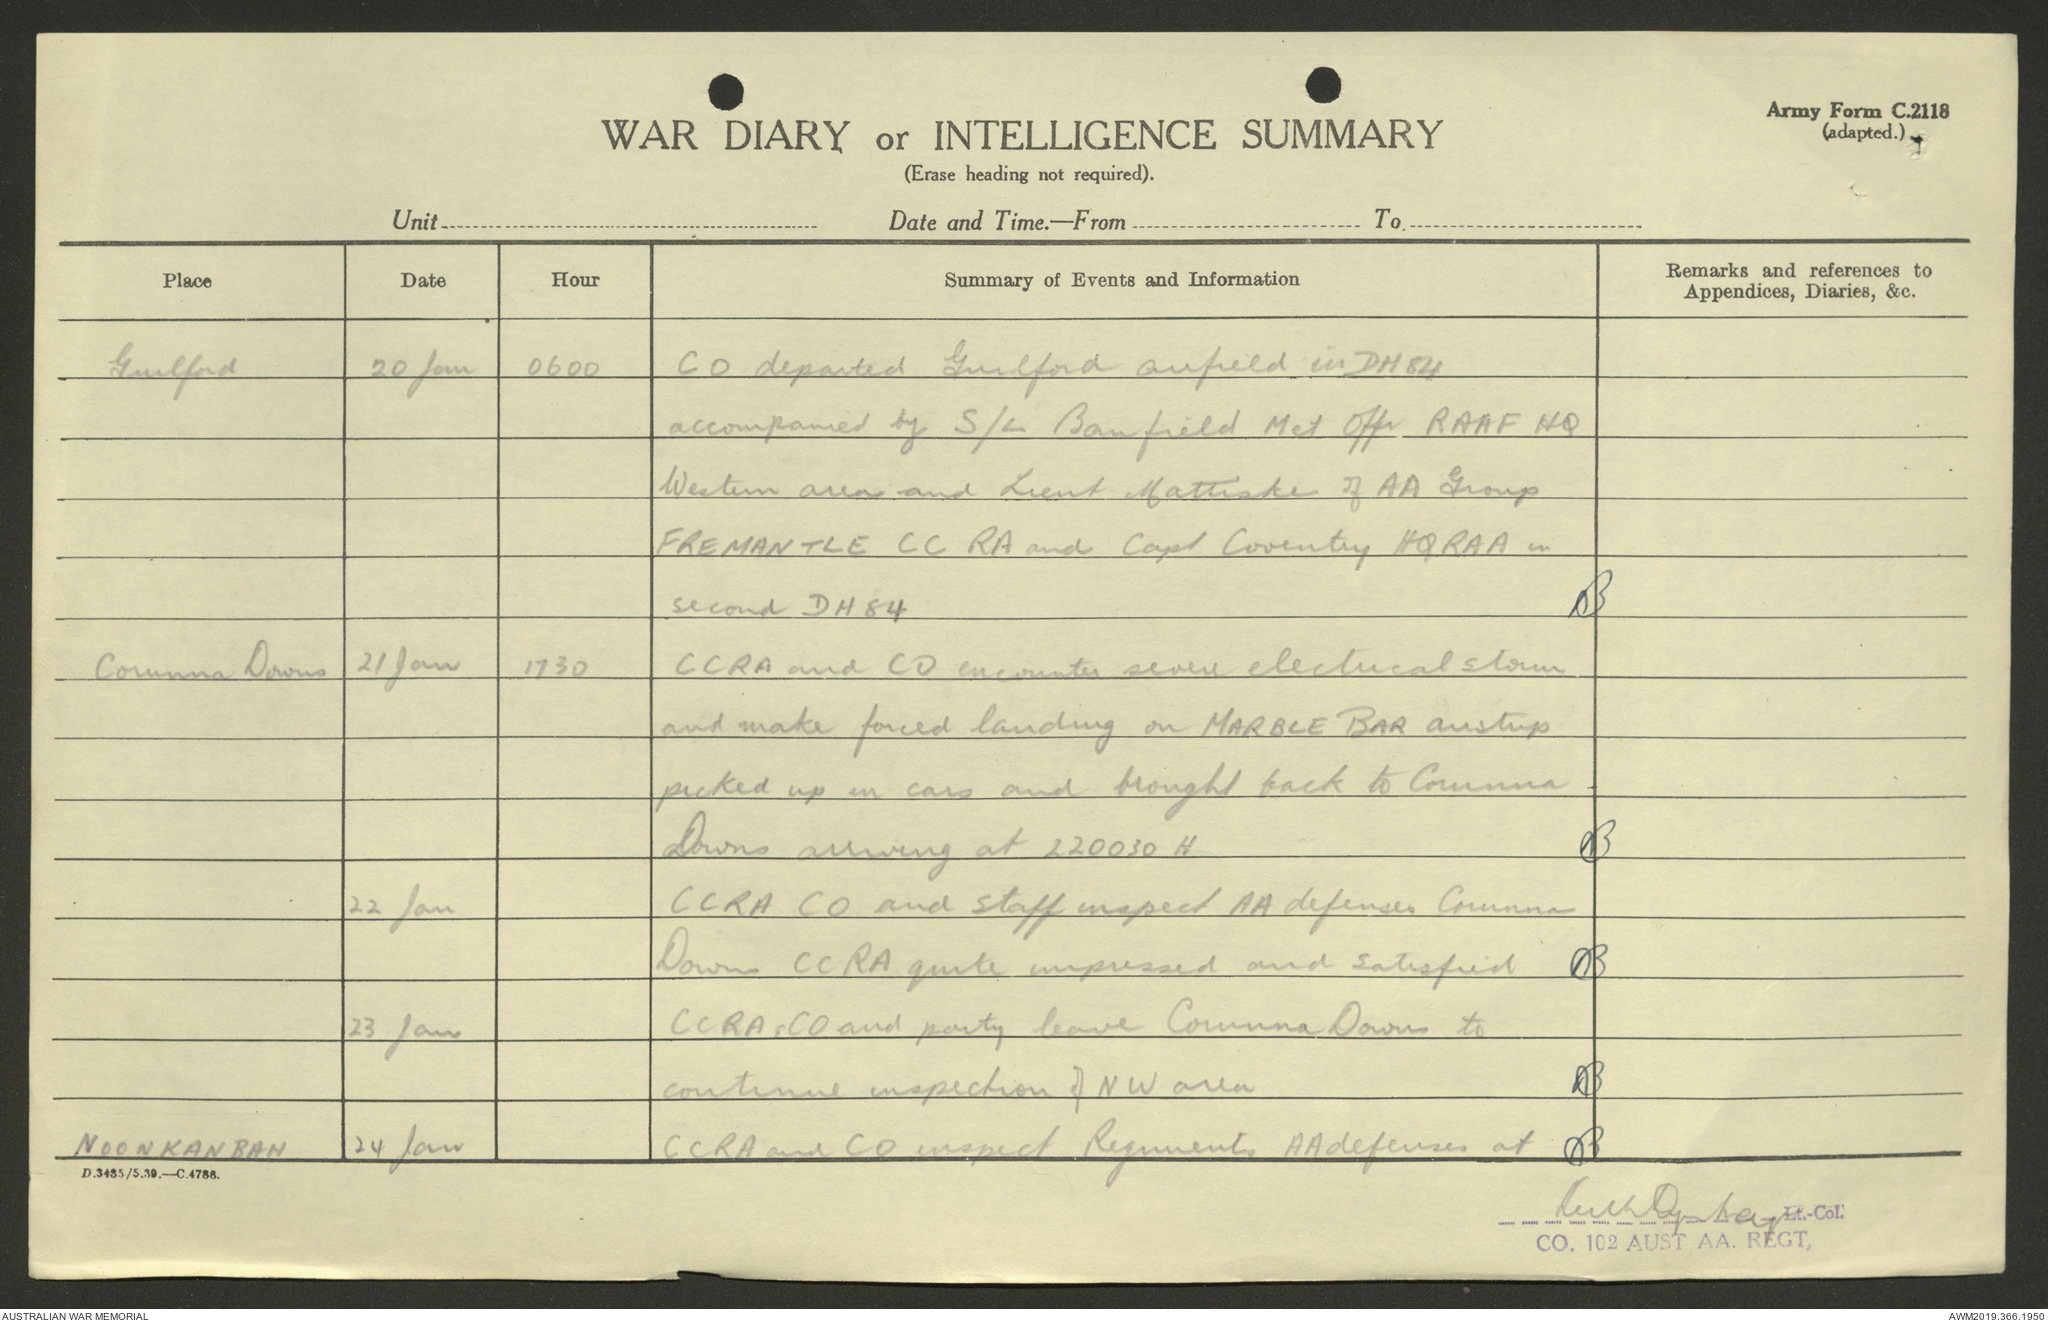 Army Form C.2118
(adapted.)
WAR DIARY or INTELLIGENCE SUMMARY
(Erase heading not required).
Unit Date and Time.—From To
Place Date Hour Summary of Events and Information Remarks and references to
Appendices, Diaries, &c.
Guilford 20 Jan 0600 CO departed Guilford airfield in DH84
accompanied by S/L Banfield Met Offr RAAF HQ
Western area and Lieut Mattiske of AA Group
FREMANTLE CC RA and Capt Coventry HQRAA in
second DH84
Corunna Downs 21 Jan 1730 CCRA and CO encounter severe electrical storm
and make forced landing on MARBLE BAR airstrip
picked up in cars and brought back to Corunna
Downs arriving at 220030 H
22 Jan CCRA CO and staff inspect AA defenses Corunna
Downs CCRA quite impressed and satisfied
23 Jan CCRA, CO and party leave Corunna Downs to
continue inspection of NW area
NOONKANBAH 24 Jan CCRA and CO inspect Regiments AA defenses at
D.3485/5.39.—C.4788.
Lt.-Col.
CO. 102 AUST AA. REGT,
AUSTRALIAN WAR MEMORIAL AWM2019.366.1950